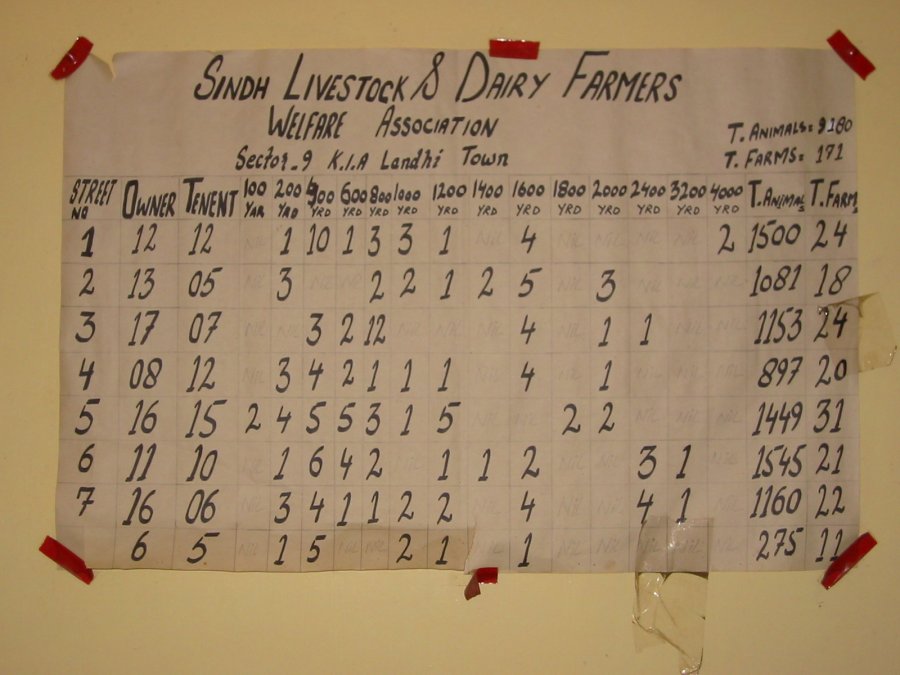 SINDH LIVESTOCK & DAIRY FARMERS
WELFARE ASSOCIATION
T. ANIMALS= 9180
Sector-9 K.I.A Landhi Town
T. FARMS= 171
STREET OWNER TENENT 100 200 400 600 800 1000 1200 1400 1600 1800 2000 2400 3200 4000 T.ANIMALS T.FARMS
NO YAR YRD YRD YRD YRD YRD YRD YRD YRD YRD YRD YRD YRD YRD
1 12 12 Nil 1 10 1 3 3 1 Nil 4 Nil Nil Nil Nil 2 1500 24
2 13 05 Nil 3 Nil Nil 2 2 1 2 5 Nil 3 Nil Nil Nil 1081 18
3 17 07 Nil Nil 3 2 12 Nil Nil Nil 4 Nil 1 1 Nil Nil 1153 24
4 08 12 Nil 3 4 2 1 1 1 Nil 4 Nil 1 Nil Nil Nil 897 20
5 16 15 2 4 5 5 3 1 5 Nil Nil 2 2 Nil Nil Nil 1449 31
6 11 10 Nil 1 6 4 2 Nil 1 1 2 Nil Nil 3 1 Nil 1545 21
7 16 06 Nil 3 4 1 1 2 2 Nil 4 Nil Nil 4 1 Nil 1160 22
6 5 Nil 1 5 Nil Nil 2 1 Nil 1 Nil Nil Nil Nil Nil 275 11